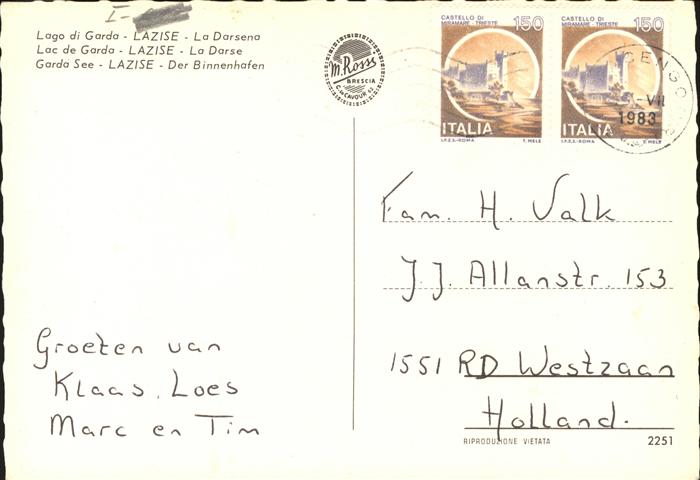 I-
Lago di Garda - LAZISE - La Darsena
Lac de Garda - LAZISE - La Darse
Garda See - LAZISE - Der Binnenhafen
M. Rossi
BRESCIA
C.so CAVOUR 42
CASTELLO DI
MIRAMARE - TRIESTE
150
ITALIA
I.P.Z.S.-ROMA
T. MELE
CASTELLO DI
MIRAMARE - TRIESTE
150
ITALIA
I.P.Z.S.-ROMA
T. MELE
-VII
1983
Fam. H. Valk
J.J. Allanstr. 153
1551 RD Westzaan
Holland.
Groeten van
Klaas, Loes
Marc en Tim
RIPRODUZIONE VIETATA
2251